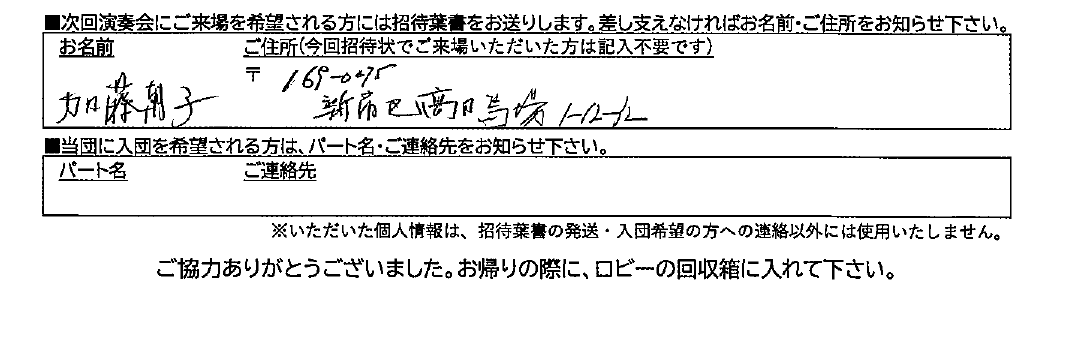 ■次回演奏会にご来場を希望される方には招待葉書をお送りします。差し支えなければお名前・ご住所をお知らせ下さい。
お名前 ご住所(今回招待状でご来場いただいた方は記入不要です)
〒 169-0075
加藤朝子 新宿区高田馬場1-12-12
■当団に入団を希望される方は、パート名・ご連絡先をお知らせ下さい。
パート名 ご連絡先
※いただいた個人情報は、招待葉書の発送・入団希望の方への連絡以外には使用いたしません。
ご協力ありがとうございました。お帰りの際に、ロビーの回収箱に入れて下さい。